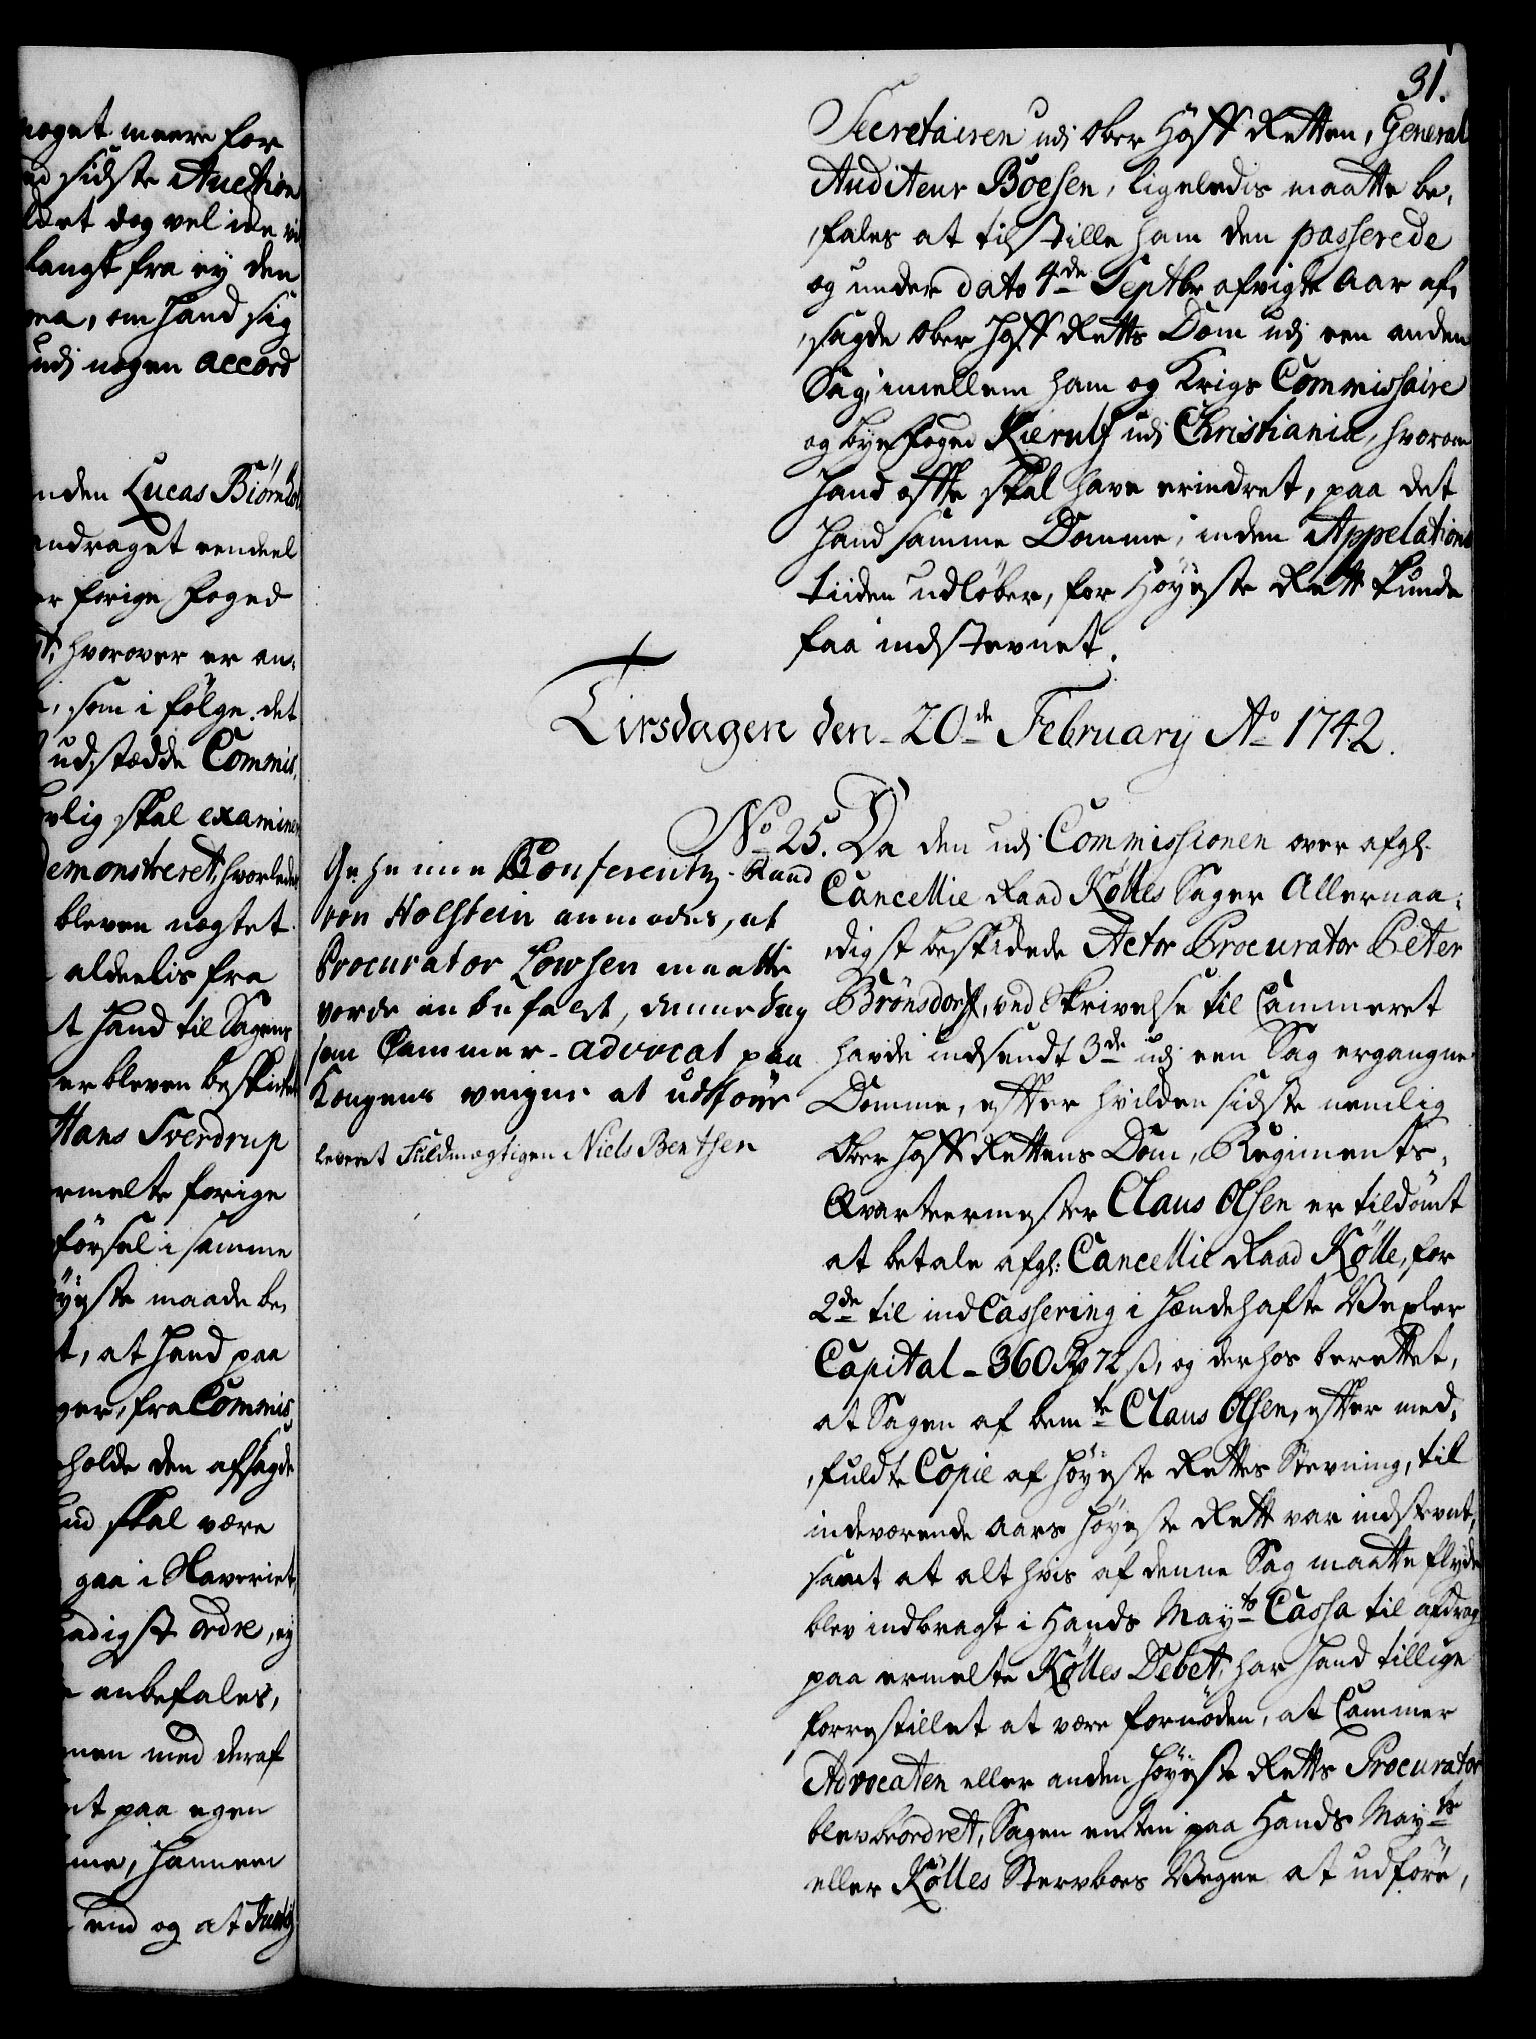 noget meere for
sidste Auction
det dog vel ide vi
langt fra ey den
ma, om hand sig
udj nogen accord
nden Lucas Biørnsen
andraget eendeel
forige foged
hvorover er an-
, som i følge det
udstædde Commis,
lig skal examiner
demonstreret, hvorledes
bleven nægtet
aldeelis fra
t hand til Sagens
er bleven beskicket
Hans Sverdrup
rmelte forige
førsel i samme
øyeste maade be,
t, at hand paa
ger, fra Commis
holde den afsagde
skal være
gaa i Slaveriet,
aadigst ordre, ey
anbefales,
men med deraf
nt paa egen
me, hannem
end og at Justiz
31.
Secretairen udj Ober Hoff Retten, General
Auditeur Boesen, ligeledis maatte be,
,fales at tilstille ham den passerede
og under dato 4de Septbr afvigte Aar af,
,sagde Ober Hoff Retts Dom udj een anden
Sag, imellem ham og Krigs Commissaire
og Byefoged Kierulf udj Christiania, hvorom
hand offte skal have erindret, paa det
hand samme Domme, inden Appelations
tiiden udløber, for Høyeste Rett kunde
faa indstevnet.
Tirsdagen den 20de February Ao 1742.
No 25. Da den udj Commissionen over afgl.
Cancellie Raad Kølles Sager Allernaa-
,digst beskickede Actor Procurator Peter
Brønsdorff, ved Skrivelse til Cammeret
havde indsendt 3de udj een Sag ergangne
Domme, efter hvilken sidste nemlig
Ober Hoff Rettens Dom, Regiments-
Qvarteermester Claus Olsen er tildømt
at betale afgl. Cancellie Raad Kølle, for
2de til indCassering i hændehafte Vexler
Capital - 360 Rd 72 ß, og derhos berettet,
at Sagen af bemte Claus Olsen, efter med,
,fuldte Copie af Høyeste Rettes Stevning, til
indeværende Aars Høyeste Rett var indstevnt,
samt at alt hvis af denne Sag maatte flyde
blev indbragt i Hands Mayts Cassa til afdrag
paa ermelte Kølles Debet, har hand tillige
forrestillet at være fornøden, at Cammer
Advocaten eller anden Høyeste Retts Procurator
blev beordret, Sagen enten paa Hands Mayts
eller Kølles Stervboes Vegne at udføre,
Geheime Conferentz-Raad
von Holstein anmodes, at
Procurator Lowsen maatte
vorde anbefalet, denne Sag
som Cammer-Advocat paa
Kongens veigne at udføre
leveret Fuldmægtigen Niels Bentsen